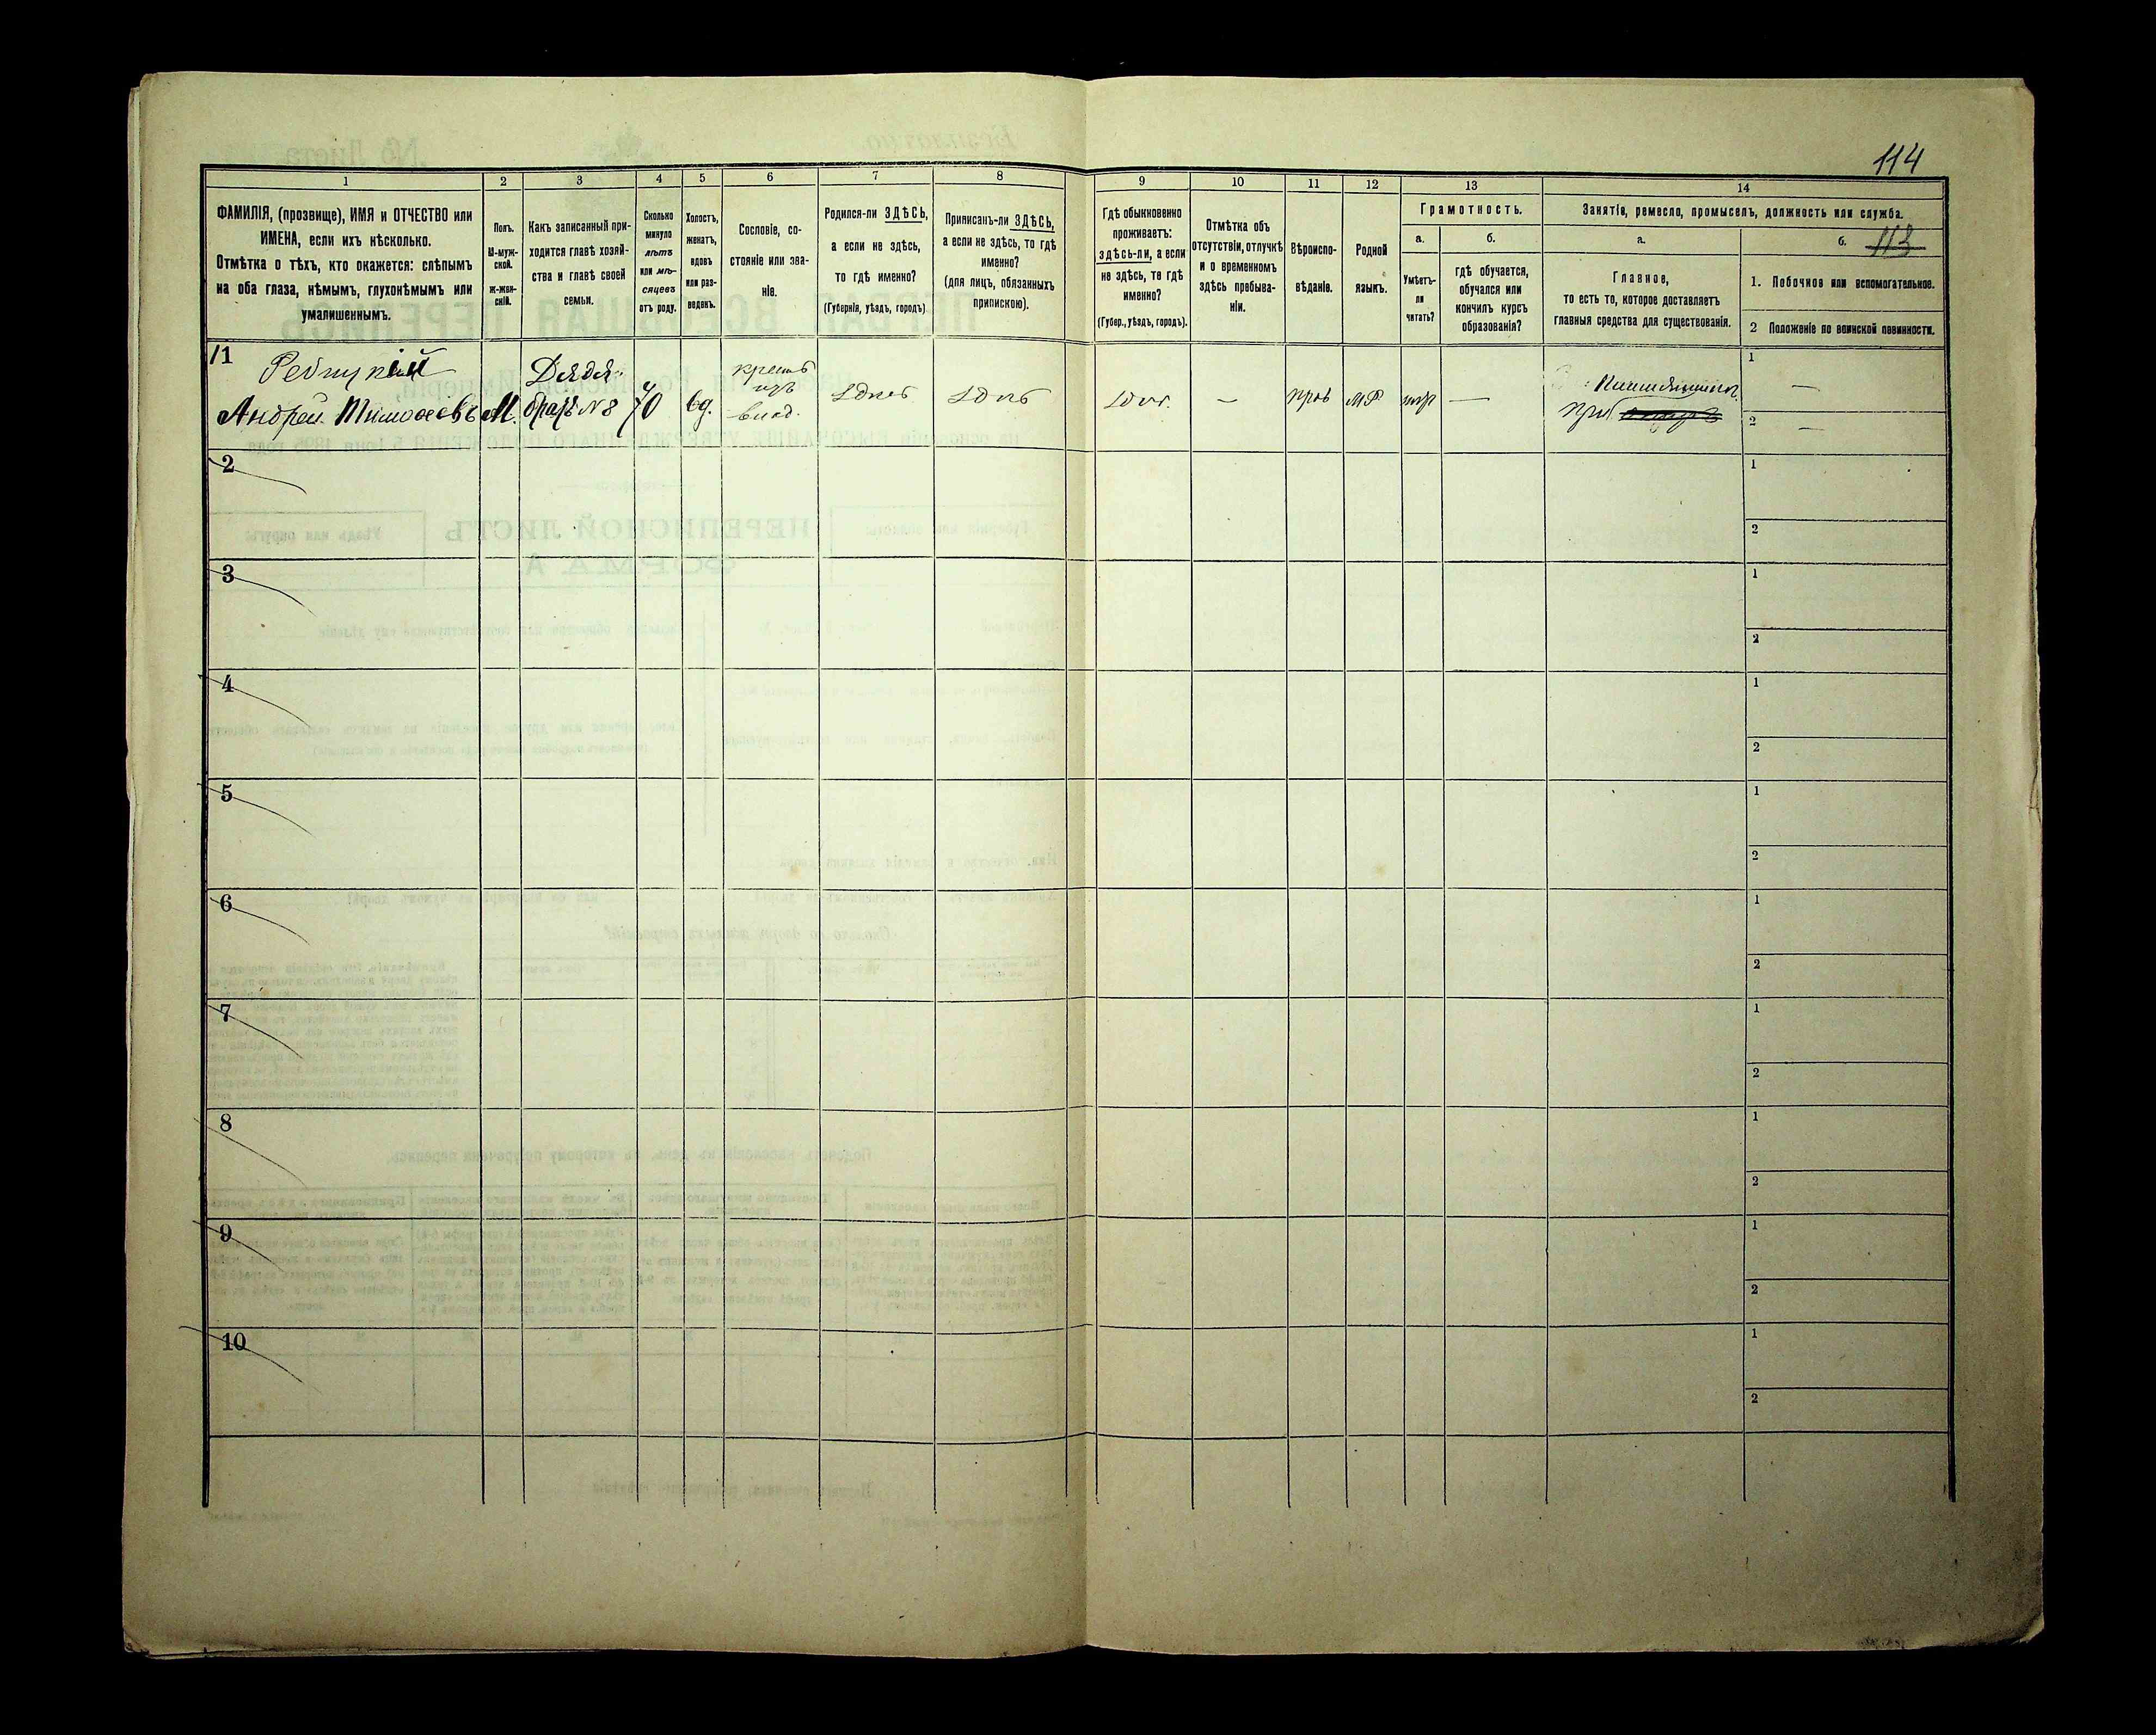 114
1
2
3
4
5
6
7
8
9
10
11
12
13
14
ФАМИЛІЯ, (прозвище), ИМЯ и ОТЧЕСТВО или
ИМЕНА, если ихъ нѣсколько.
Отмѣтка о тѣхъ, кто окажется: слѣпымъ
на оба глаза, нѣмымъ, глухонѣмымъ или
умалишеннымъ.
Полъ.
М-муж-
ской.
ж-жен-
скій.
Какъ записанный при-
ходится главѣ хозяй-
ства и главѣ своей
семьи.
Сколько
минуло
лѣтъ
или мѣ-
сяцевъ
отъ роду.
Холостъ,
женатъ,
вдовъ
или раз-
веденъ.
Сословіе, со-
стояніе или зва-
ніе.
Родился-ли ЗДѢСЬ,
а если не здѣсь,
то гдѣ именно?
(Губернія, уѣздъ, городъ)
Приписанъ-ли ЗДѢСЬ,
а если не здѣсь, то гдѣ
именно?
(для лицъ, обязанныхъ
припискою).
Гдѣ обыкновенно
проживаетъ:
здѣсь-ли, а если
не здѣсь, то гдѣ
именно?
(Губер., уѣздъ, городъ).
Отмѣтка объ
отсутствіи, отлучкѣ
и о временномъ
здѣсь пребыва-
ніи.
Вѣроиспо-
вѣданіе.
Родной
языкъ.
Грамотность.
а.
Умѣетъ-
ли
читать?
б.
гдѣ обучается,
обучался или
кончилъ курсъ
образованія?
Занятіе, ремесло, промыселъ, должность или служба.
а.
Главное,
то есть то, которое доставляетъ
главныя средства для существованія.
б. 113
1. Побочное или вспомогательное.
2 Положеніе по воинской повинности.
1
Андрей
М.
Дядя
№ 8
70
вд.
крест
изъ
—
прав
М.Р.
—
1
—
2
—
2
1
2
3
1
2
4
1
2
5
1
2
6
1
2
7
1
2
8
1
2
9
1
2
10
1
2